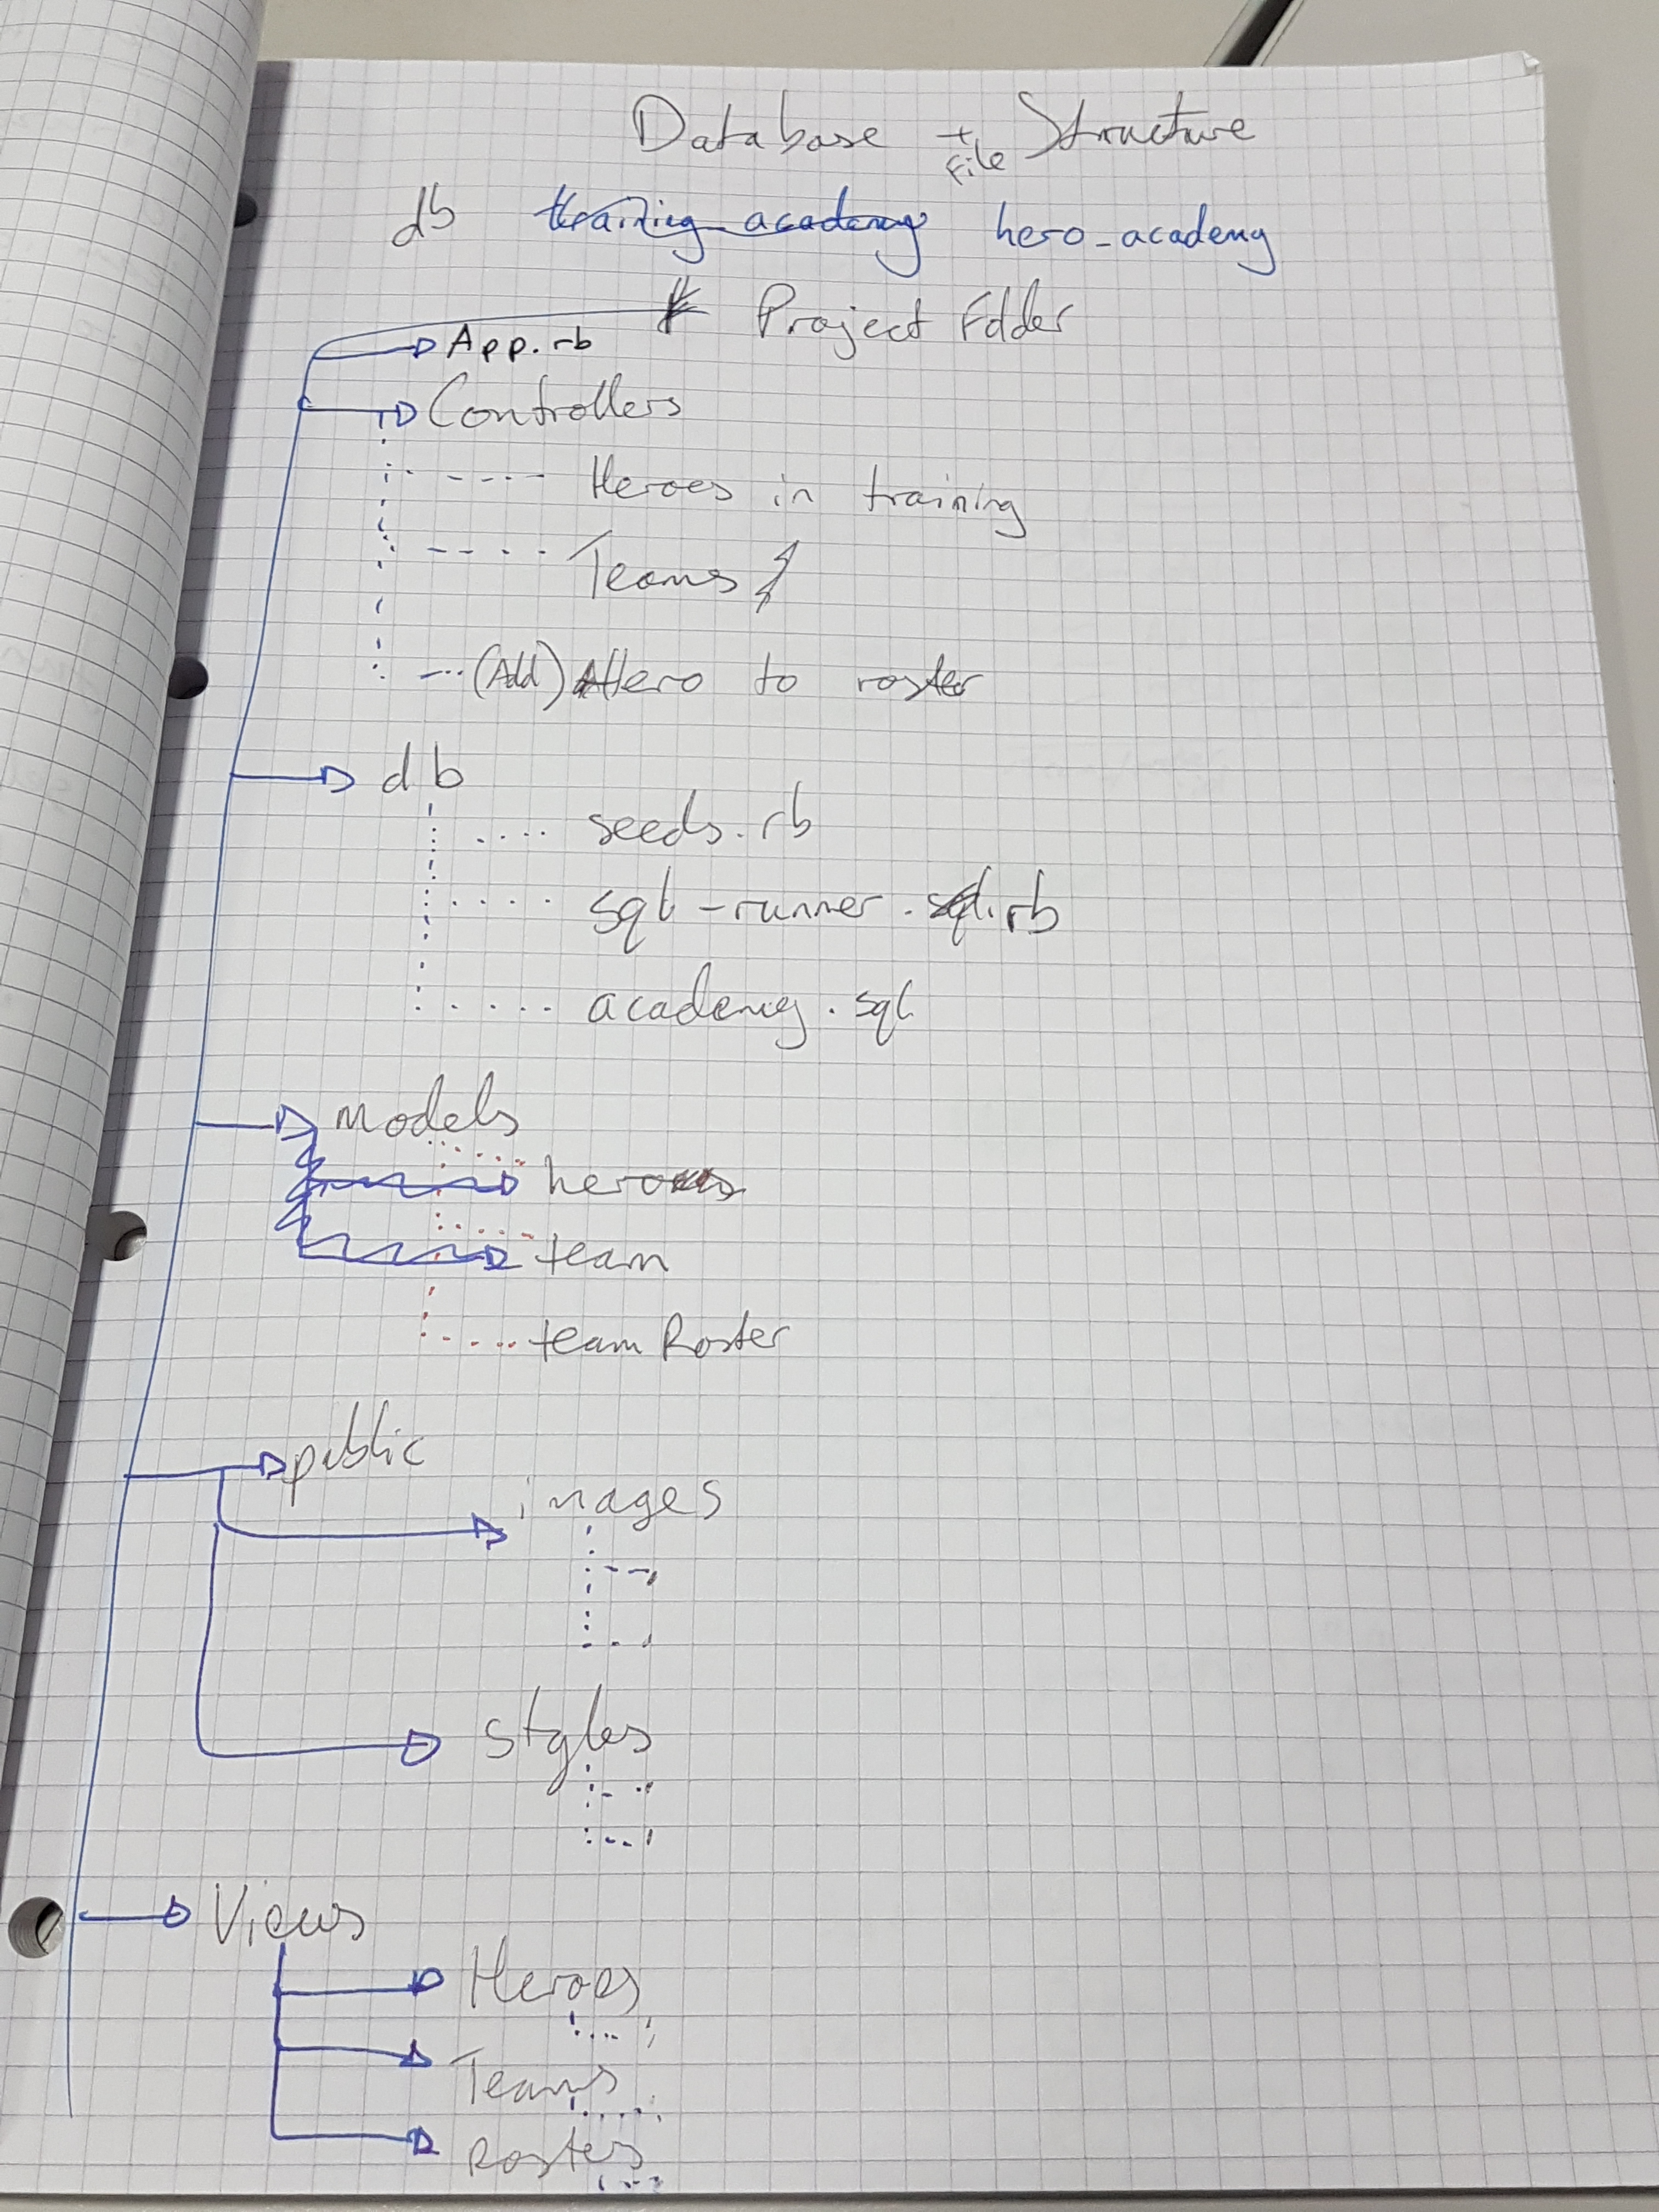 Database + File Structure
db training_academy hero_academy
Project Folder
App.rb
Controllers
Heroes in training
Teams
(Add) Hero to roster
db
seeds.rb
sql-runner.sql.rb
academy.sql
models
hero
team
team Roster
public
images
styles
Views
Heroes
Teams
Rosters